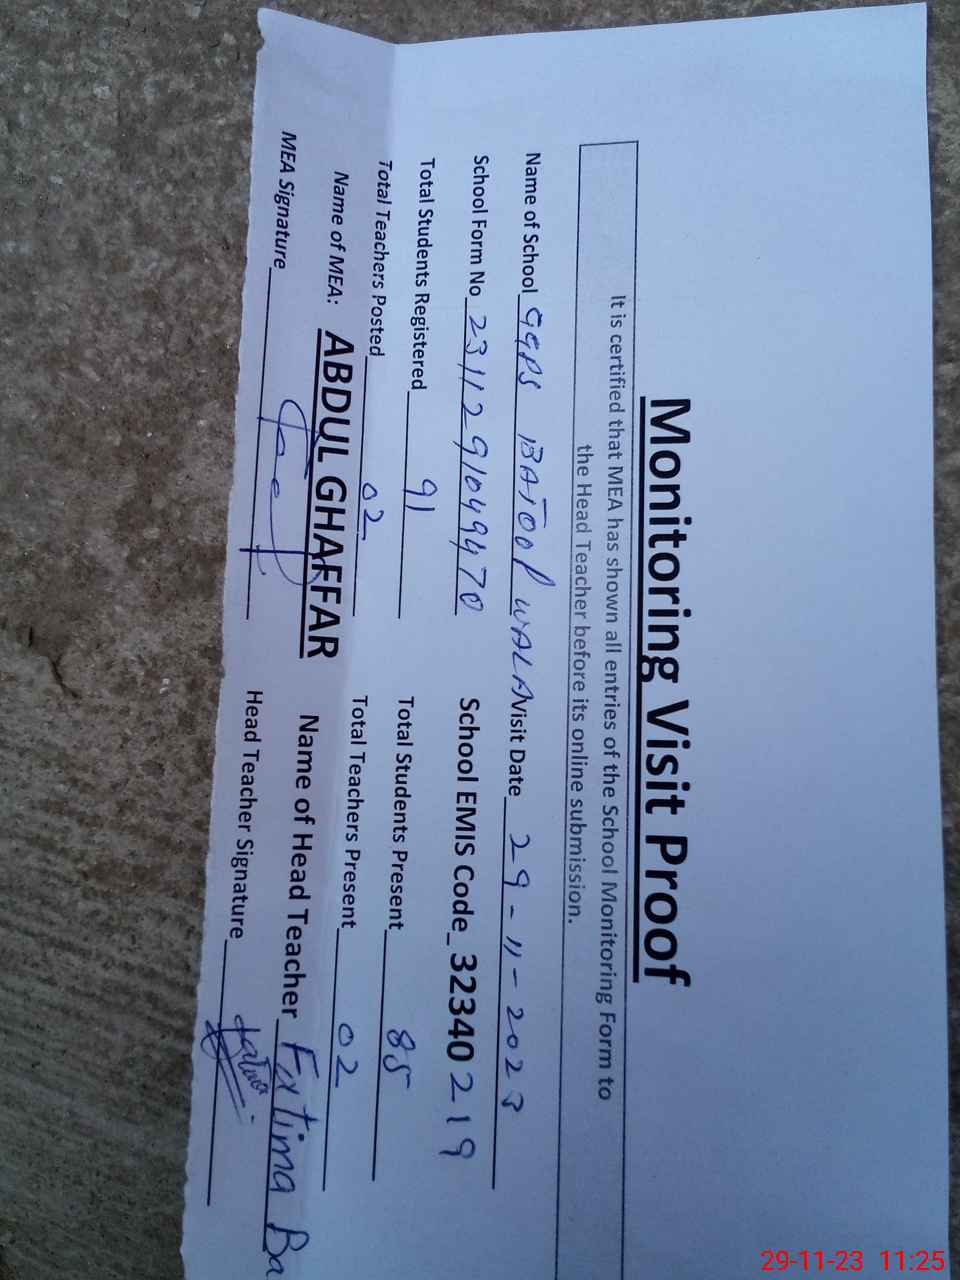 Monitoring Visit Proof
It is certified that MEA has shown all entries of the School Monitoring Form to
the Head Teacher before its online submission.
Name of School GGPS BATOOL WALA Visit Date 29-11-2023
School Form No 231129109470 School EMIS Code 32340219
Total Students Registered 91 Total Students Present 85
Total Teachers Posted 02 Total Teachers Present 02
Name of MEA: ABDUL GHAFFAR Name of Head Teacher Fatima Ba
MEA Signature Head Teacher Signature
29-11-23 11:25